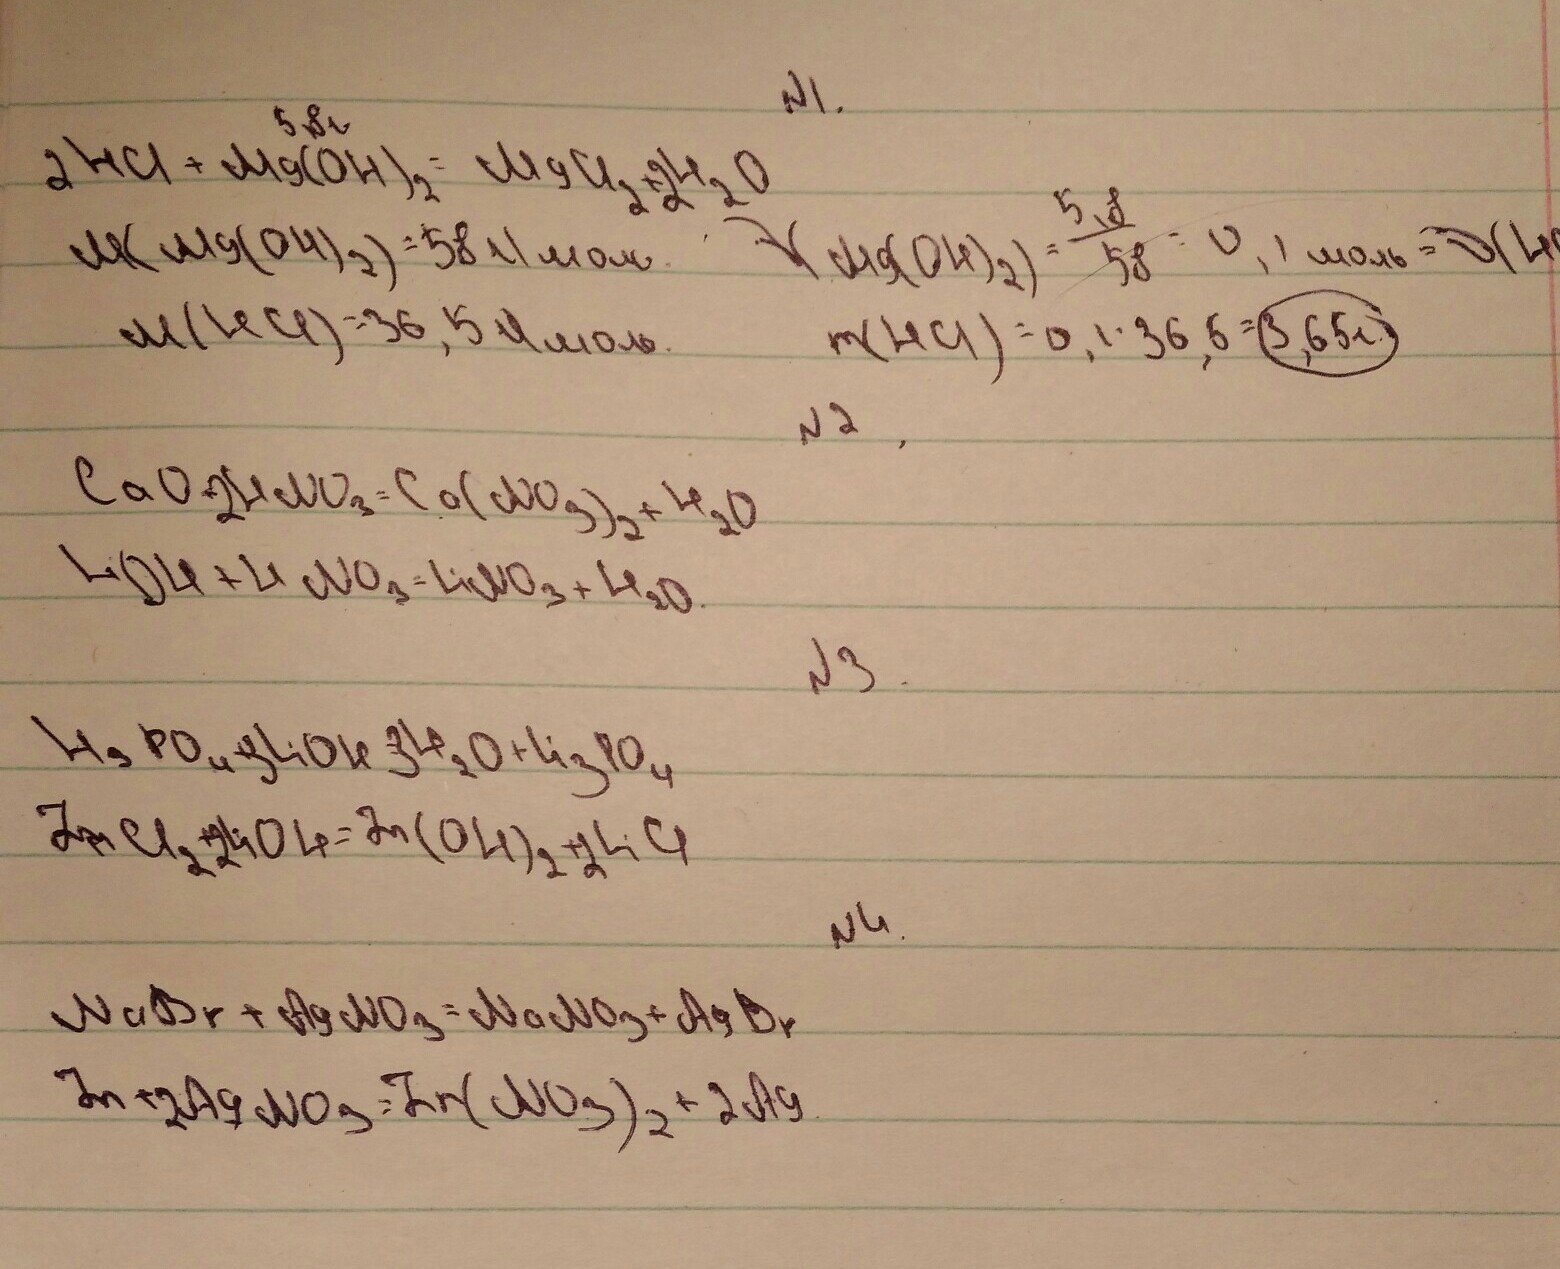 N1.
5,8г
2HCl + Mg(OH)2 = MgCl2+2H2O
M(Mg(OH)2)=58г/моль. ν(Mg(OH)2)=5,8/58=0,1 моль=ν(H
M(HCl)=36,5г/моль. m(HCl)=0,1·36,5=3,65г.
N2.
CaO+2HNO3=Ca(NO3)2+H2O
LiOH+HNO3=LiNO3+H2O.
N3.
H3PO4+3LiOH=3H2O+Li3PO4
ZnCl2+2LiOH=Zn(OH)2+2LiCl
N4.
NaBr+AgNO3=NaNO3+AgBr
Zn+2AgNO3=Zn(NO3)2+2Ag.